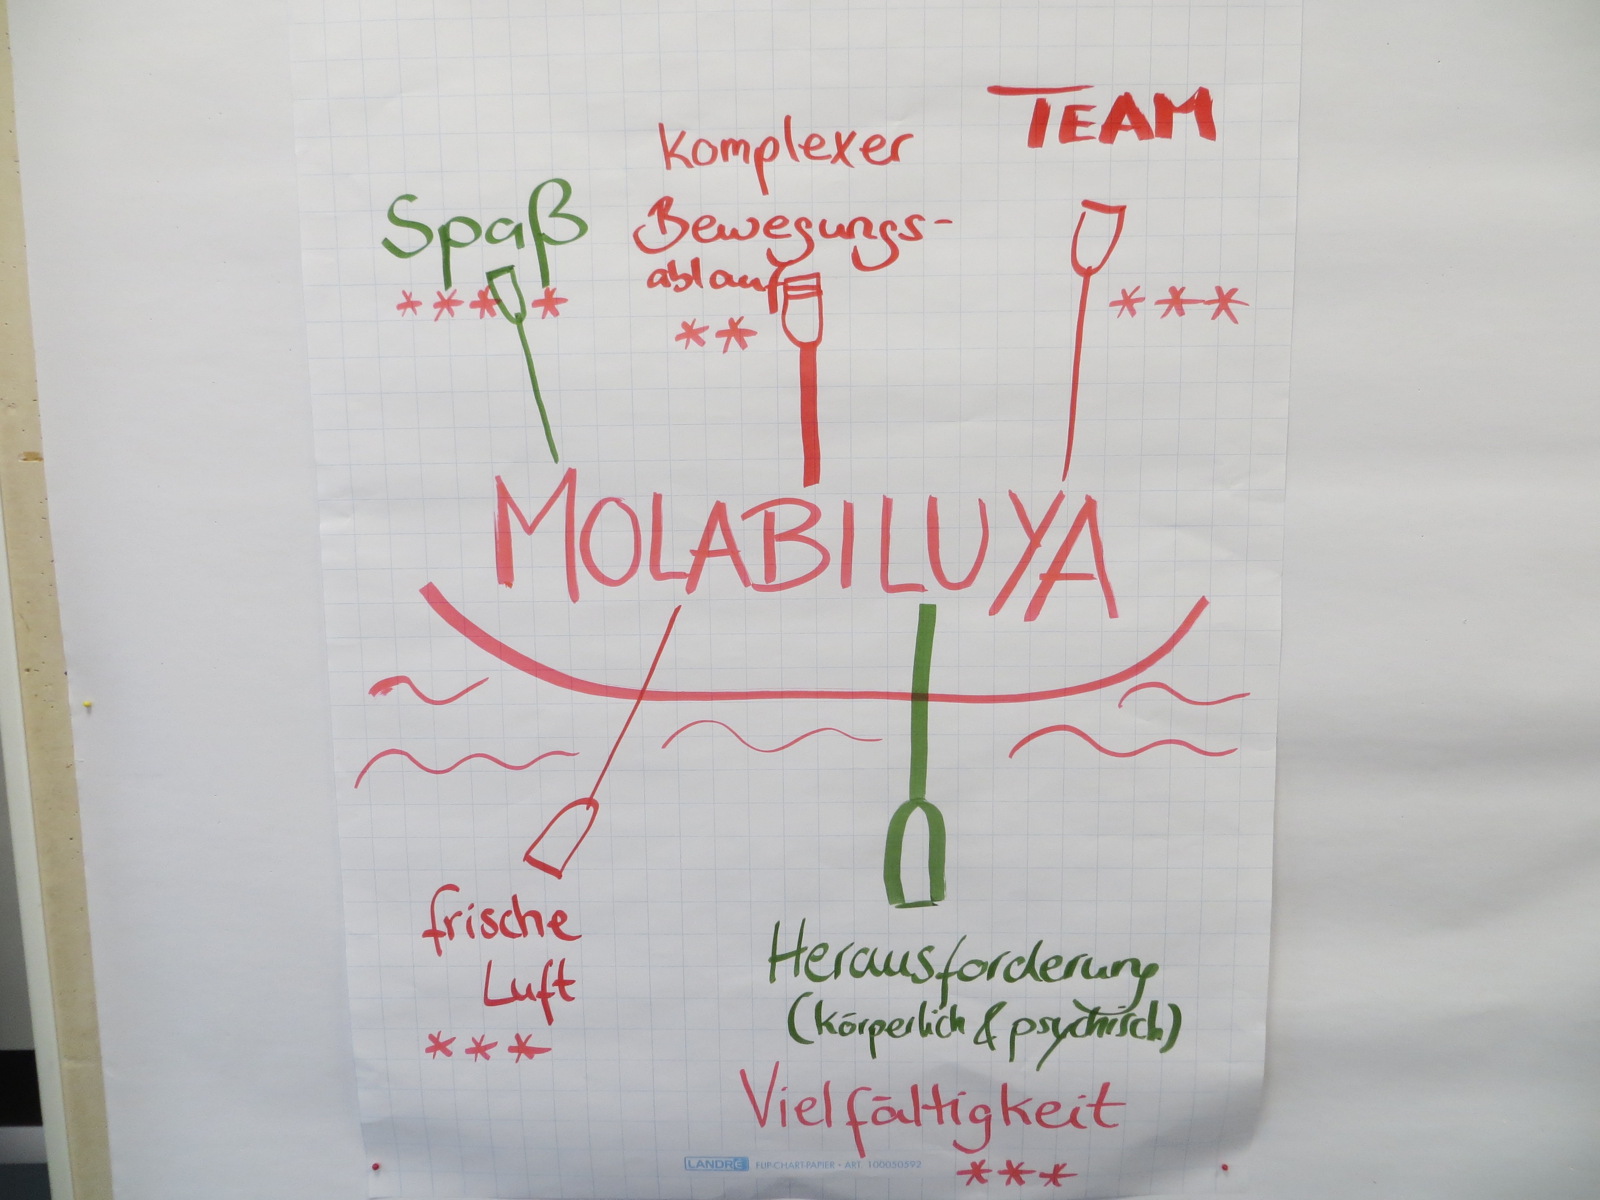 TEAM
Komplexer
Bewegungs-
ablauf
**
Spaß
****
***
MOLABILUYA
frische
Luft
***
Herausforderung
(körperlich & psychisch)
Vielfältigkeit
***
LANDRÉ FLIP-CHART-PAPIER • ART. 100050592